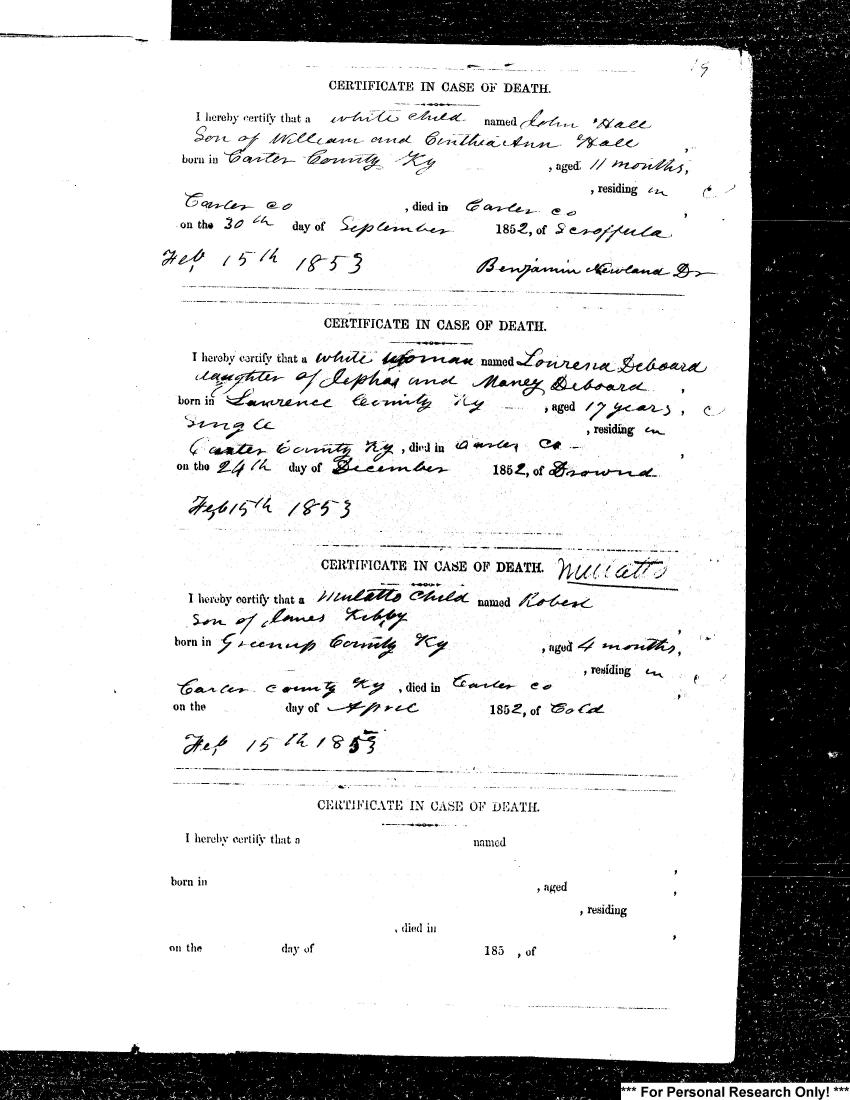 19
CERTIFICATE IN CASE OF DEATH.
I hereby certify that a white child named John Hall
Son of William and Cinthia Ann Hall ,
born in Carter County Ky , aged 11 months,
, residing in
Carter co , died in Carter co ,
on the 30th day of September 1852, of Scroffula
Feb 15th 1853 Benjamin Newland Dr
CERTIFICATE IN CASE OF DEATH.
I hereby certify that a white woman named Lourena Deboard
daughter of Jephas and Maney Deboard ,
born in Lawrence County Ky , aged 17 years,
Single , residing in
Carter County Ky , died in Carter Co ,
on the 24th day of December 1852, of Drownd
Feb 15th 1853
CERTIFICATE IN CASE OF DEATH. Mulatto
I hereby certify that a Mulatto Child named Robert
Son of James Kibby ,
born in Greenup County Ky , aged 4 months,
, residing in
Carter county Ky , died in Carter co ,
on the day of April 1852, of Cold
Feb 15th 1853
CERTIFICATE IN CASE OF DEATH.
I hereby certify that a named
,
born in , aged ,
, residing
, died in ,
on the day of 185 , of
*** For Personal Research Only! ***